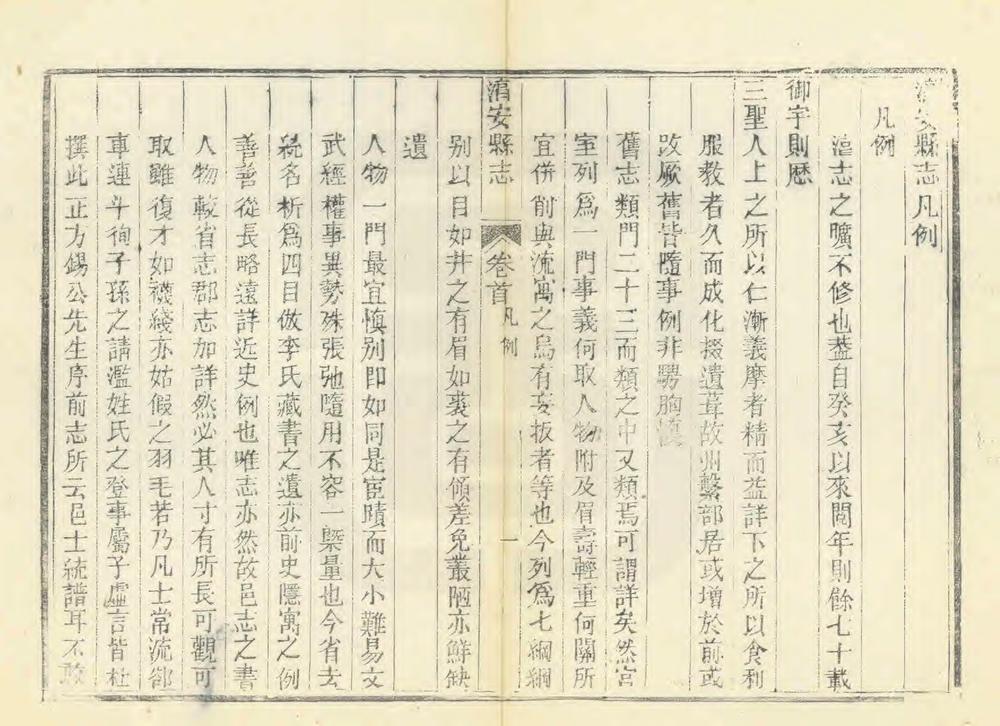 淯安縣志凡例
凡例
淯志之曠不修也葢自癸亥以來閱年則餘七十載
御宇則歷
三聖人上之所以仁漸義摩者精而益詳下之所以食利
服教者久而成化掇遺葺故州繫部居或增於前或
改厥舊皆隨事例非騁胸
舊志類門二十三而類之中又類焉可謂詳矣然宮
室列爲一門事義何取人物附及眉壽輕重何關所
宜併削與流寓之烏有妄扳者等也今列爲七綱綱
淯安縣志
卷首
凡例
一
别以目如井之有眉如裘之有領差免叢陋亦鮮缺
遺
人物一門最宜愼别卽如同是宦蹟而大小難易文
武經權事異勢殊張弛隨用不容一槩量也今省去
統名析爲四目倣李氏藏書之遺亦前史隱寓之例
善善從長略遠詳近史例也唯志亦然故邑志之書
人物較省志郡志加詳然必其人寸有所長可觀可
取雖復才如襪綫亦姑假之羽毛若乃凡士常流郤
車連斗徇子孫之請濫姓氏之登事屬子虛言皆杜
撰此正方錫公先生序前志所云邑士統譜耳不敢